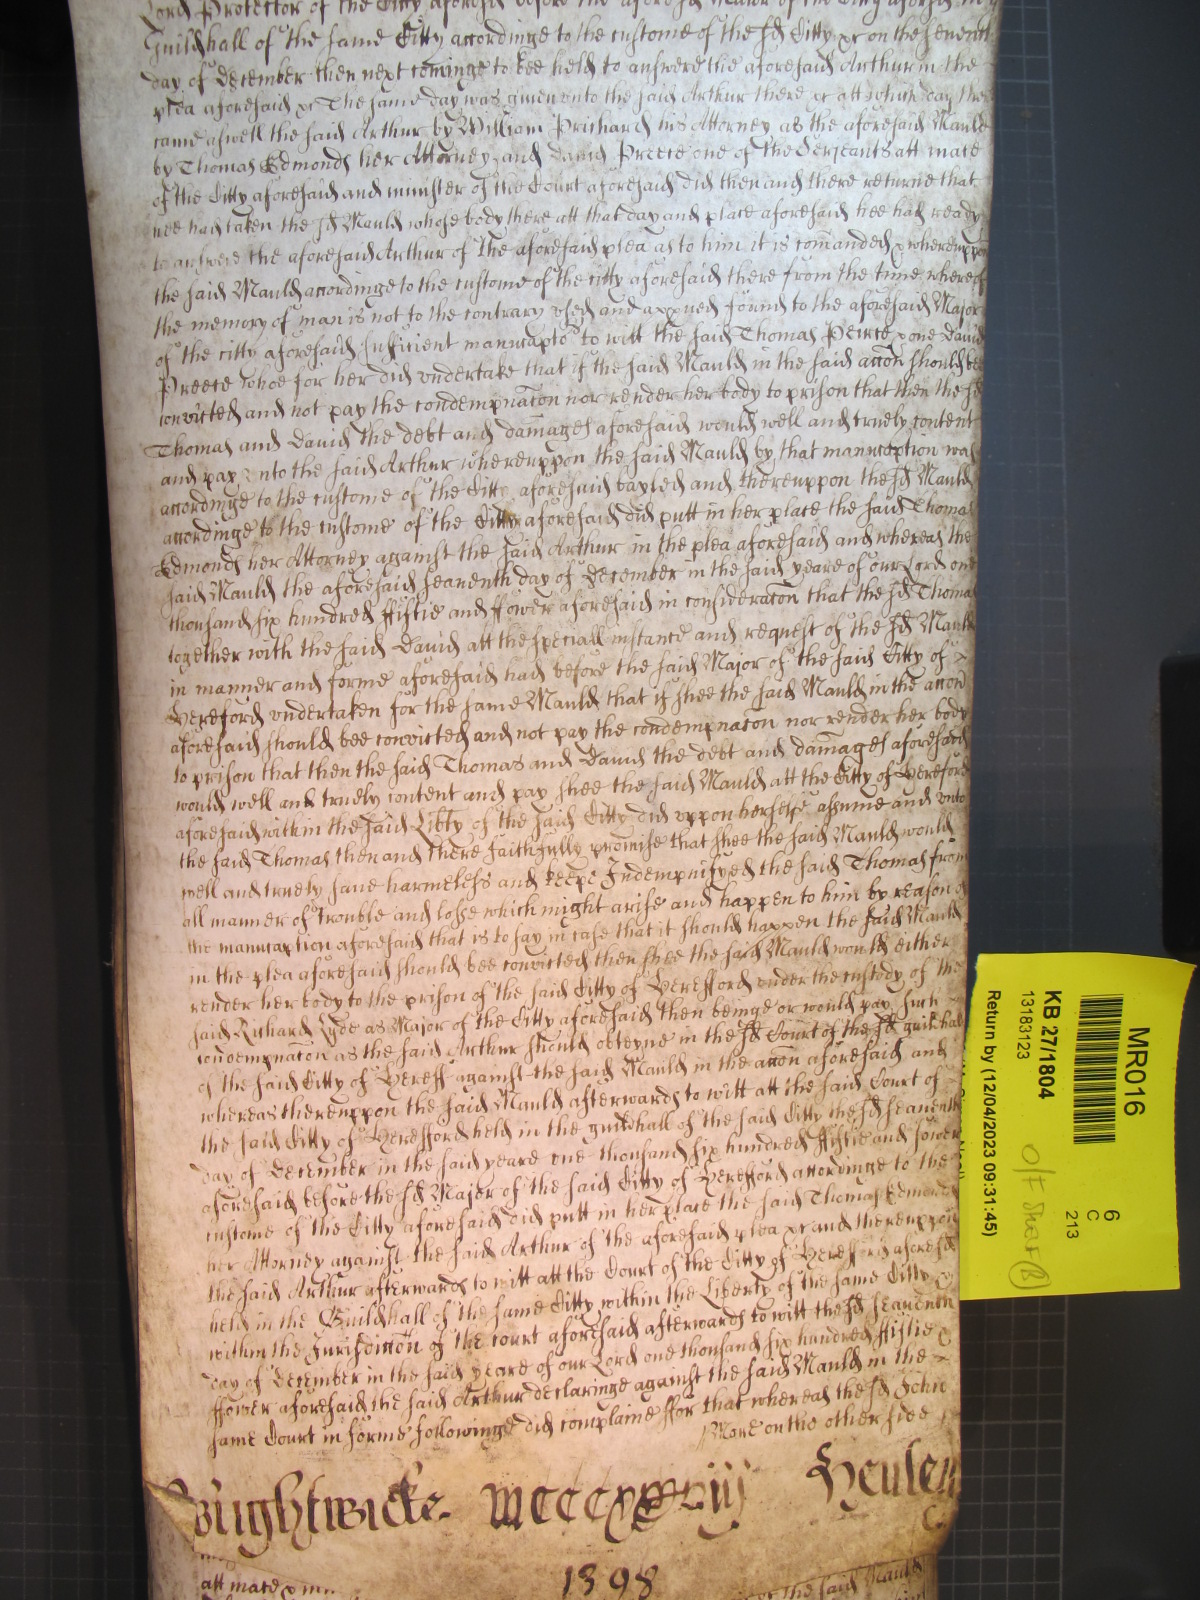 Lord Protector of the Citty aforesd before the aforesd Maior of the Citty aforesd in
Guildhall of the same Citty accordinge to the custome of the sd Citty &c on the seventh
day of December then next cominge to bee held to answere the aforesaid Arthur in the
plea aforesaid &c The same day was given unto the said Arthur there &c att which day there
came aswell the said Arthur by William Prichard his Attorney as the aforesaid Mauld
by Thomas Edmonds her Attorney and David Preece one of the Serjeants att mace
of the Citty aforesaid and minister of the Court aforesaid did then and there returne that
hee had taken the sd Mauld whose body there att that day and place aforesaid hee had ready
to answere the aforesaid Arthur of the aforesaid plea as to him it is comanded & whereuppon
the said Mauld accordinge to the custome of the citty aforesaid there from the time whereof
the memory of man is not to the contrary used and appued found to the aforesaid Major
of the citty aforesaid sufficient manucapto to witt the said Thomas Peirce & one David
Preece whoe for her did undertake that if the said Mauld in the said accon should bee
convicted and not pay the condempnacon nor render her body to prison that then the sd
Thomas and David the debt and damages aforesaid would well and truely content
and pay unto the said Arthur whereuppon the said Mauld by that manucaption was
accordinge to the custome of the Citty aforesaid bayled and thereuppon the sd Mauld
accordinge to the custome of the Citty aforesaid did putt in her place the said Thomas
Edmonds her Attorney against the said Arthur in the plea aforesaid and whereas the
said Mauld the aforesaid seaventh day of December in the said yeare of our Lord one
thousand six hundred ffiftie and ffower aforesaid in consideracon that the sd Thomas
together with the said David att the speciall instance and request of the sd Mauld
in manner and forme aforesaid had before the said Major of the said Citty of
Hereford undertaken for the same Mauld that if shee the said Mauld in the accon
aforesaid should bee convicted and not pay the condempnacon nor render her body
to prison that then the said Thomas and David the debt and damages aforesaid
would well and truely content and pay shee the said Mauld att the Citty of Hereford
aforesaid within the said Libty of the said Citty did uppon herselfe assume and unto
the said Thomas then and there faithfully promise that shee the said Mauld would
well and truely save harmelesse and keepe Indempnifyed the said Thomas from
all manner of trouble and losse which might arise and happen to him by reason of
the manucaption aforesaid that is to say in case that it should happen the said Mauld
in the plea aforesaid should bee convicted then shee the said Mauld would either
render her body to the prison of the said Citty of Herefford under the custody of the
said Richard Lyde as Major of the Citty aforesaid then beinge or would pay such
condempnacon as the said Arthur should obteyne in the sd Court of the sd guildhall
of the said Citty of Hereff against the said Mauld in the accon aforesaid and
whereas thereuppon the said Mauld afterwards to witt att the said Court of
the said Citty of Herefford held in the guildhall of the said Citty the sd seaventh
day of December in the said yeare one thousand six hundred ffiftie and fower
aforesaid before the sd Major of the said Citty of Herefford accordinge to the
custome of the Citty aforesaid did putt in her place the said Thomas Edmonds
her Attorney against the said Arthur of the aforesaid plea &c and thereuppon
the said Arthur afterwards to witt att the Court of the Citty of Herefford aforesd
held in the Guildhall of the same Citty within the Liberty of the same Citty &
within the Jurisdiccon of the court aforesaid afterwards to witt the sd seaventh
day of December in the said yeare of our Lord one thousand six hundred ffiftie &
ffower aforesaid the said Arthur declaringe against the said Mauld in the
same Court in forme followinge did complaine ffor that whereas the sd John
More on the other side
Brightwicke
1398
att mace
the said Mauld
MR016
6
C
213
KB 27/1804
13183123
Return by (12/04/2023 09:31:45)